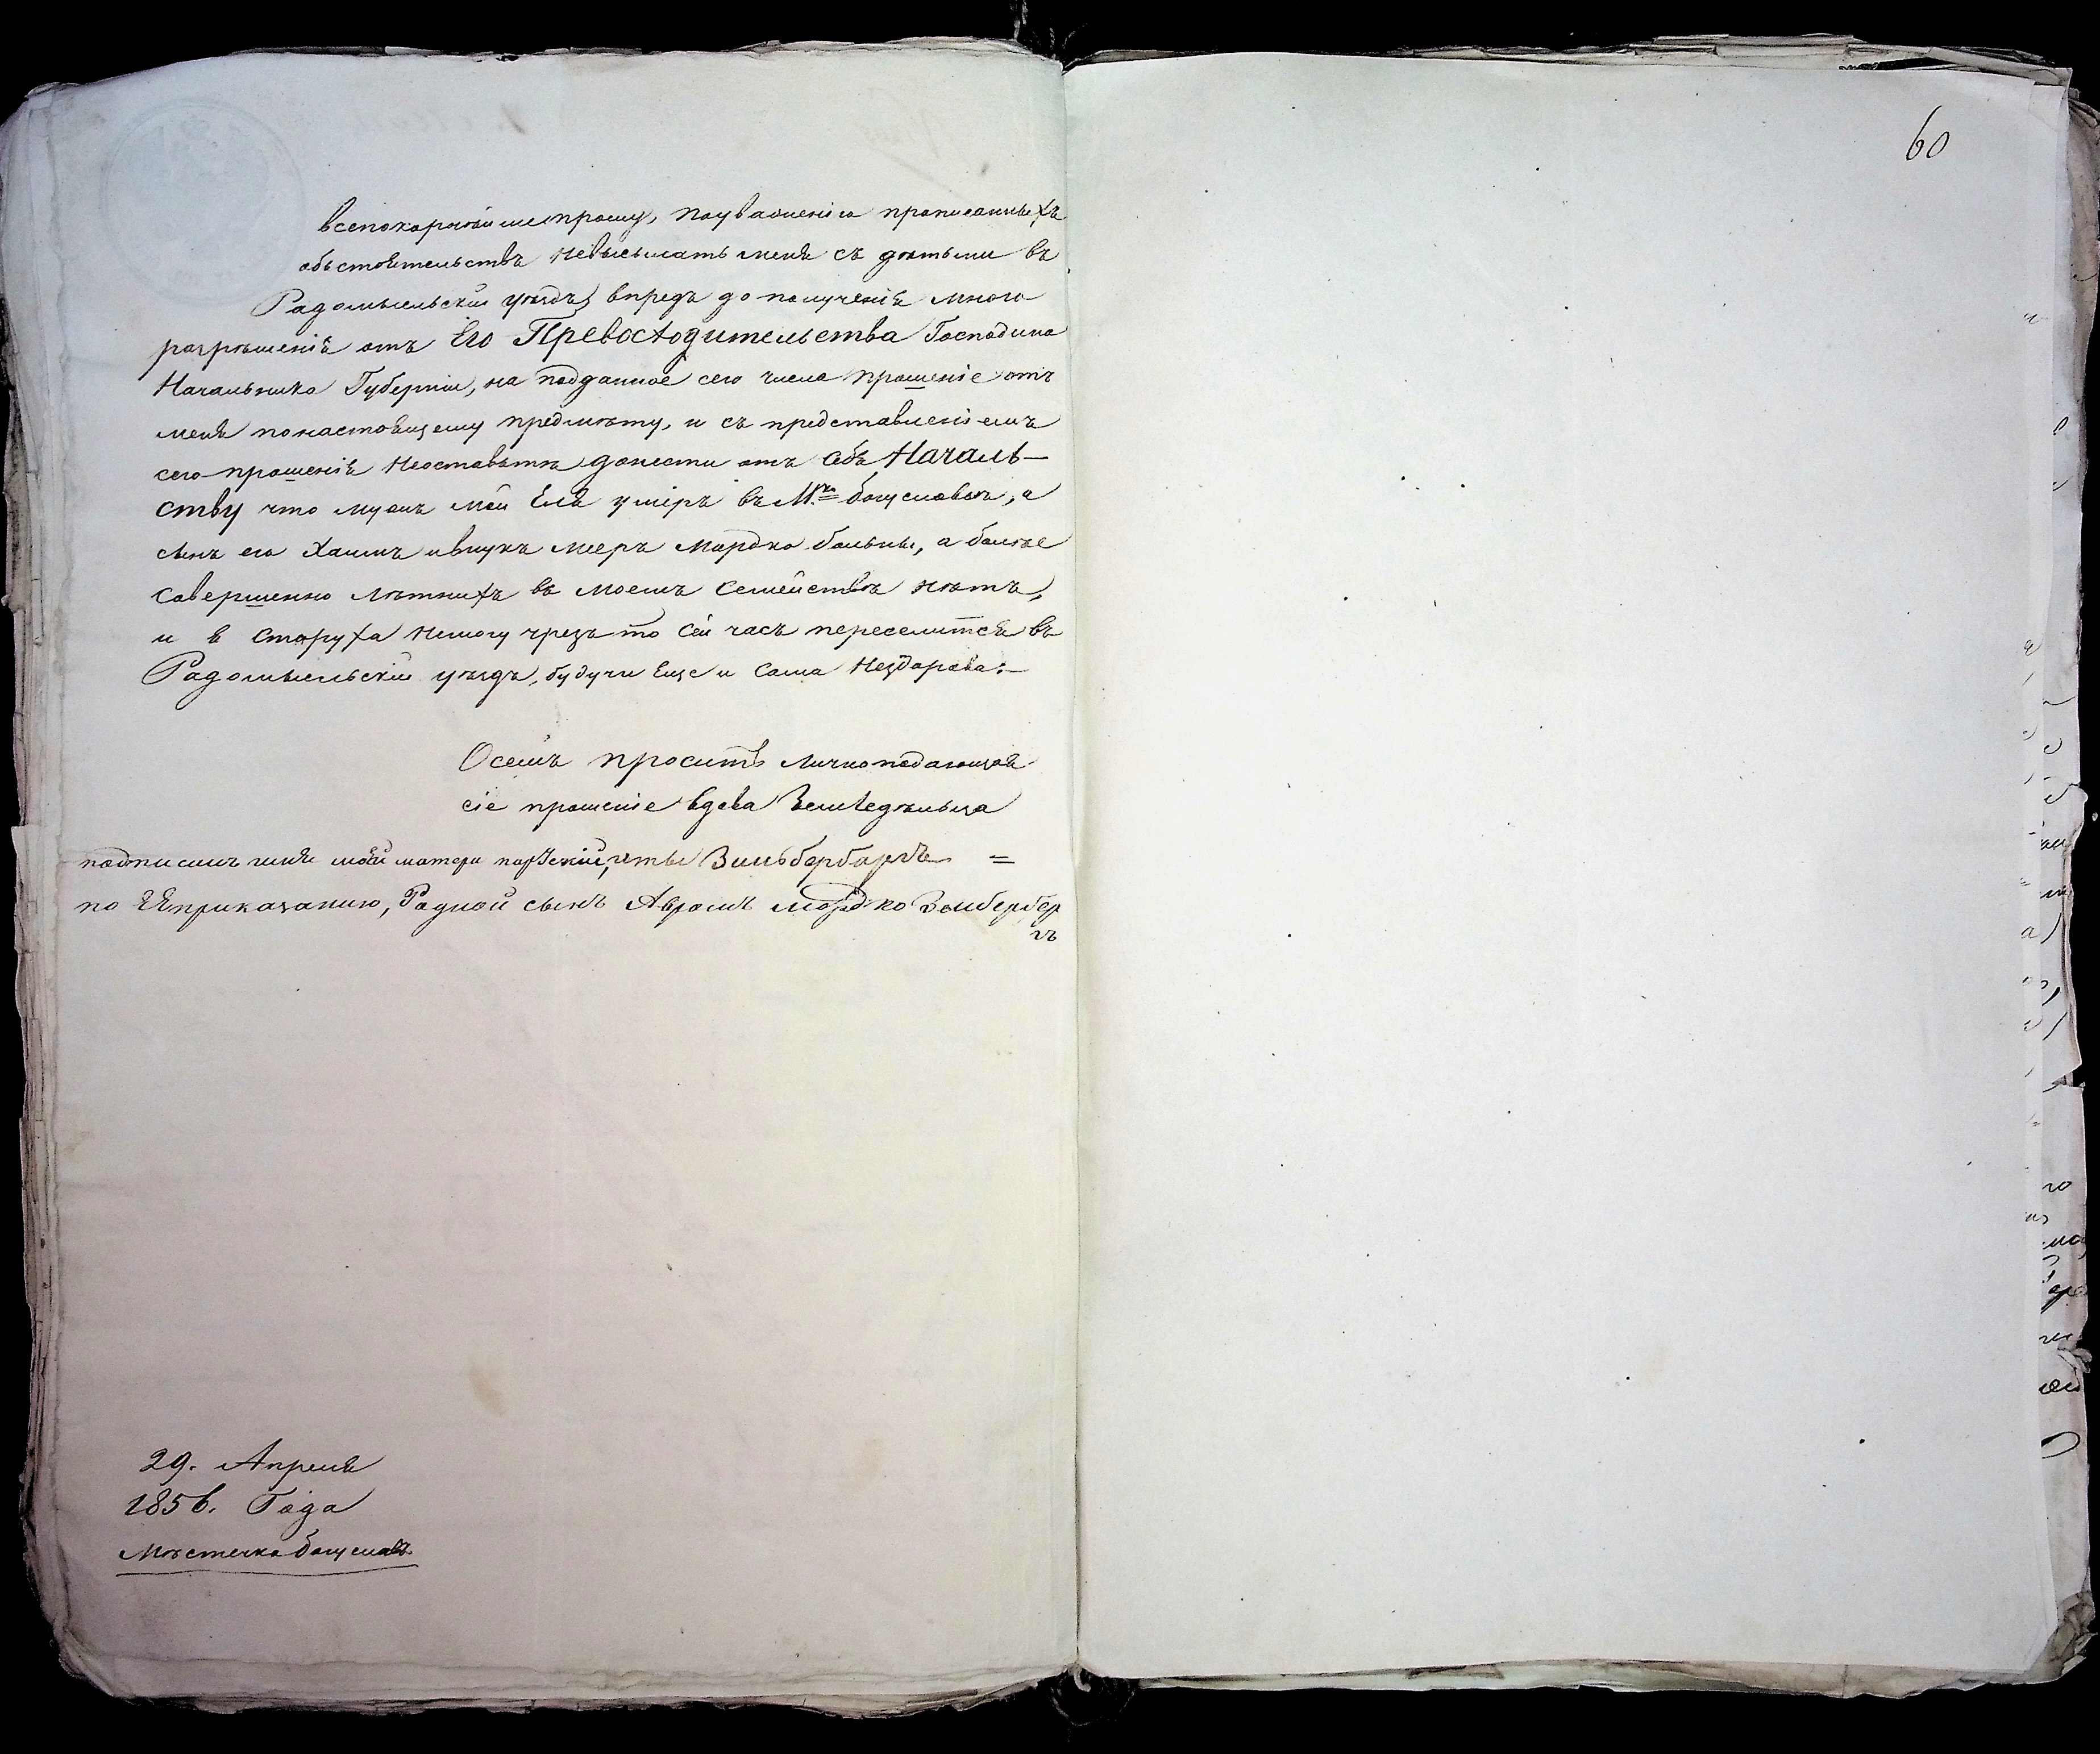 60
всепокорнѣйше прошу, по уваженію прописанныхъ
обьстоятельствъ невысылать меня съ дѣтьми въ
Радомысльскій уѣздъ, впредъ до полученія мною
разрѣшенія отъ Его Превосходительства Господина
Начальника Губерніи, на подданное сего числа прошеніе отъ
меня по настоящему предмѣту, и съ представленіемъ
сего прошенія неоставьтѣ донести отъ себя Началь-
ству что мужъ мой Еля умеръ въ М.кѣ Богуславѣ, а
сынъ его Хаимъ и внукъ Мееръ Мордко больны, а более
совершенно лѣтнихъ въ моемъ семействѣ нѣтъ,
и я старуха немогу чрезъ то сей часъ переселится въ
Радомысльскій уѣздъ, будучи еще и сама нездорова:—
О семъ проситъ лично подающая
сіе прошеніе вдова Земледѣльца
по ЕЯ приказанію, Родной сынъ Авромъ Мордко Зельбербер
гъ
29. Апреля
1856. Года
Мѣстечко Богуславъ